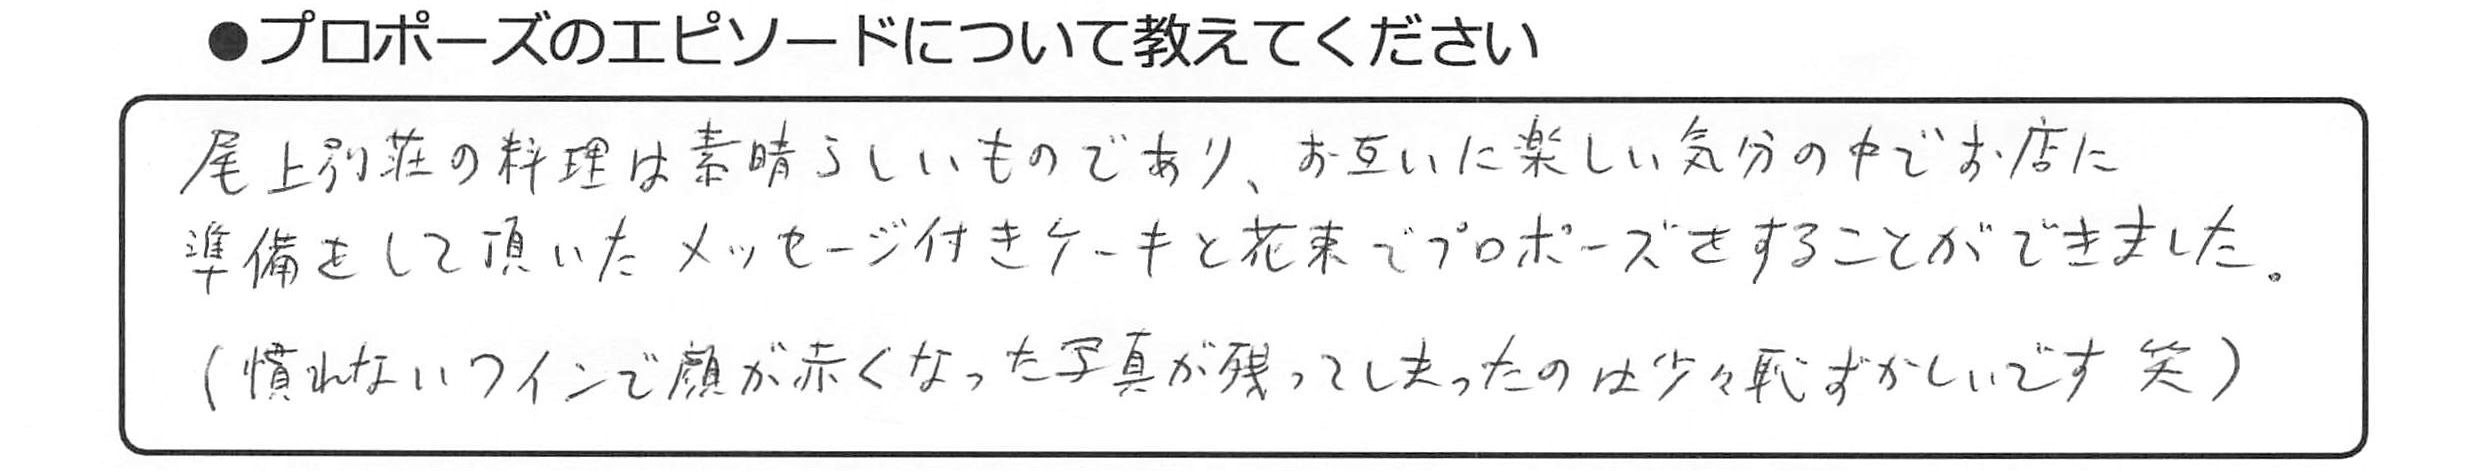 ●プロポーズのエピソードについて教えてください
尾上別荘の料理は素晴らしいものであり、お互いに楽しい気分の中でお店に
準備をして頂いたメッセージ付きケーキと花束でプロポーズをすることができました。
(慣れないワインで顔が赤くなった写真が残ってしまったのは少々恥ずかしいです 笑)